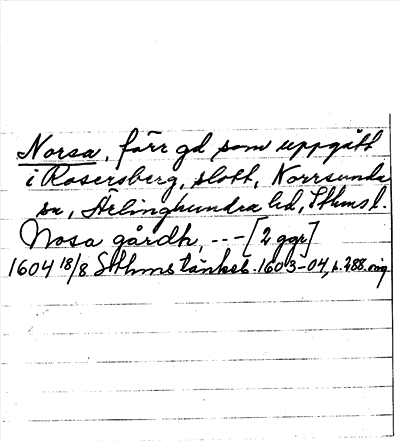 Norsa, förr gd som uppgått
i Rosersberg, slott, Norrsunda
sn, Ärlinghundra hd, Sthms l.
Nosa gårdh, --- [2 ggr]
1604 18/8 Sthms tänkeb. 1603-04, s. 288. orig